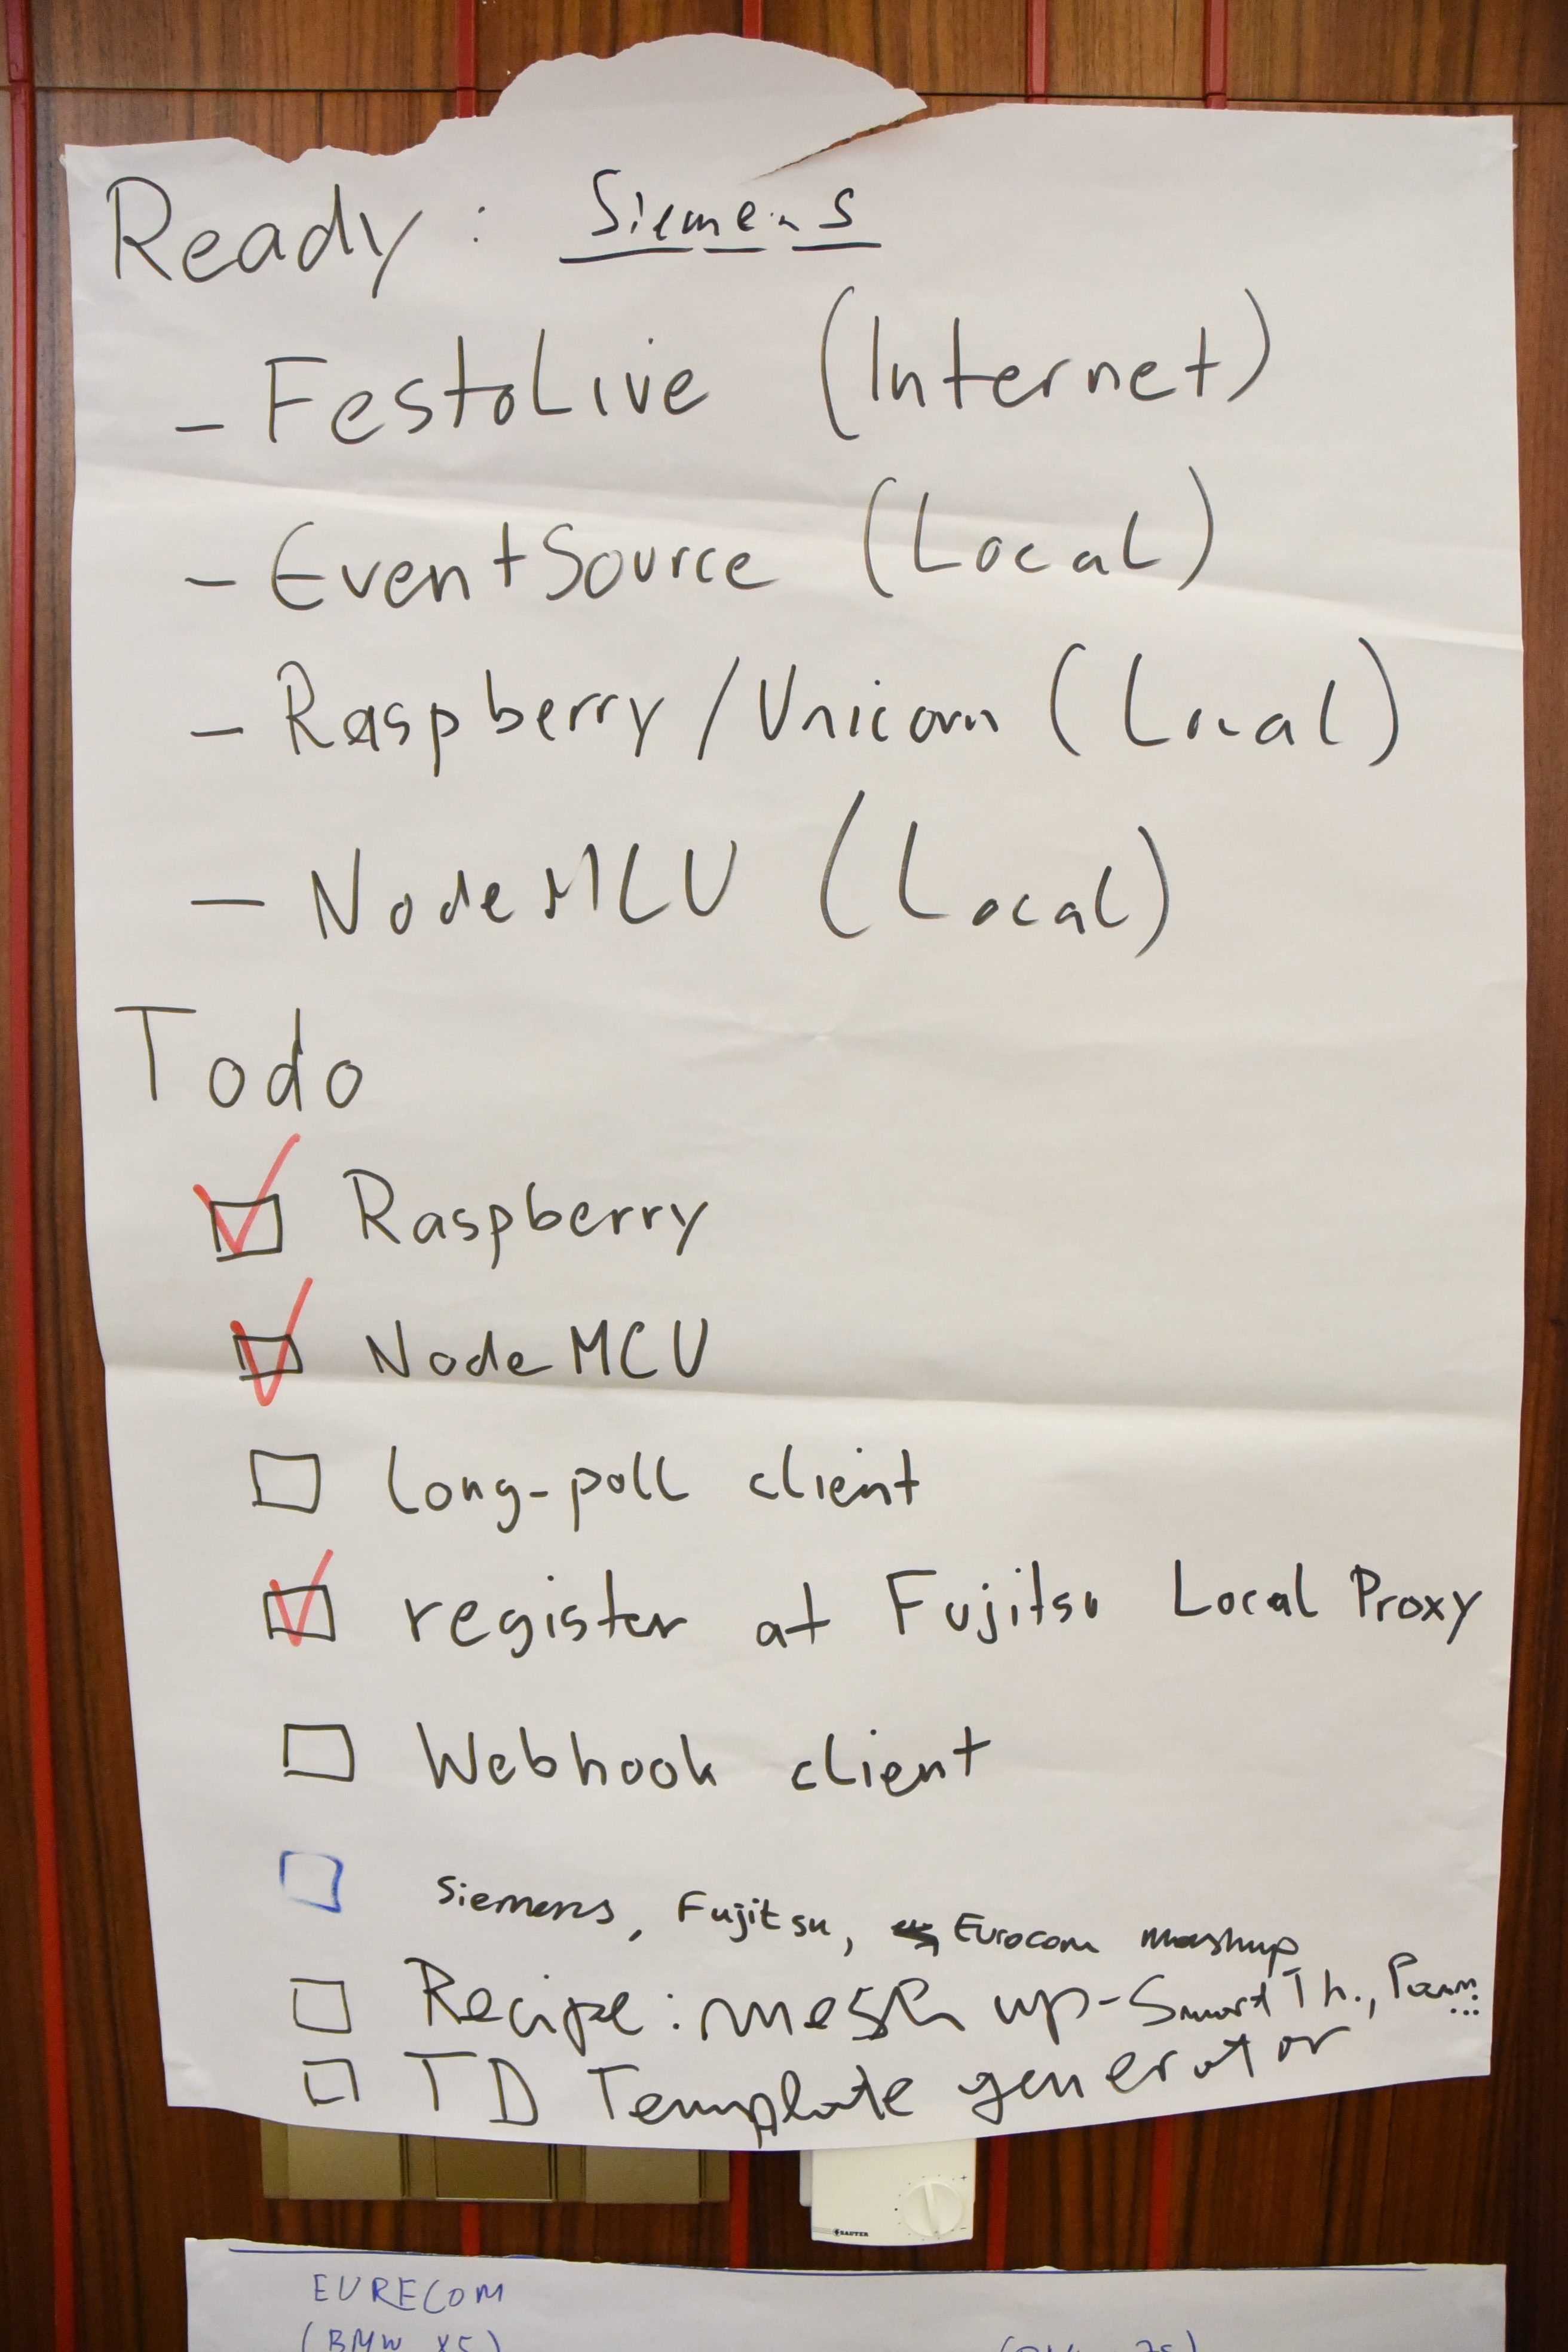 Ready: Siemens
- FestoLive (Internet)
- EventSource (Local)
- Raspberry/Unicorn (Local)
- NodeMCU (Local)
Todo
Raspberry
NodeMCU
long-poll client
register at Fujitsu Local Proxy
Webhook client
Siemens, Fujitsu, Eurocom mashup
Recipe: mesh up - Smart Th.,
TD Template generator
SAUTER
EURECOM
(BMW X5)